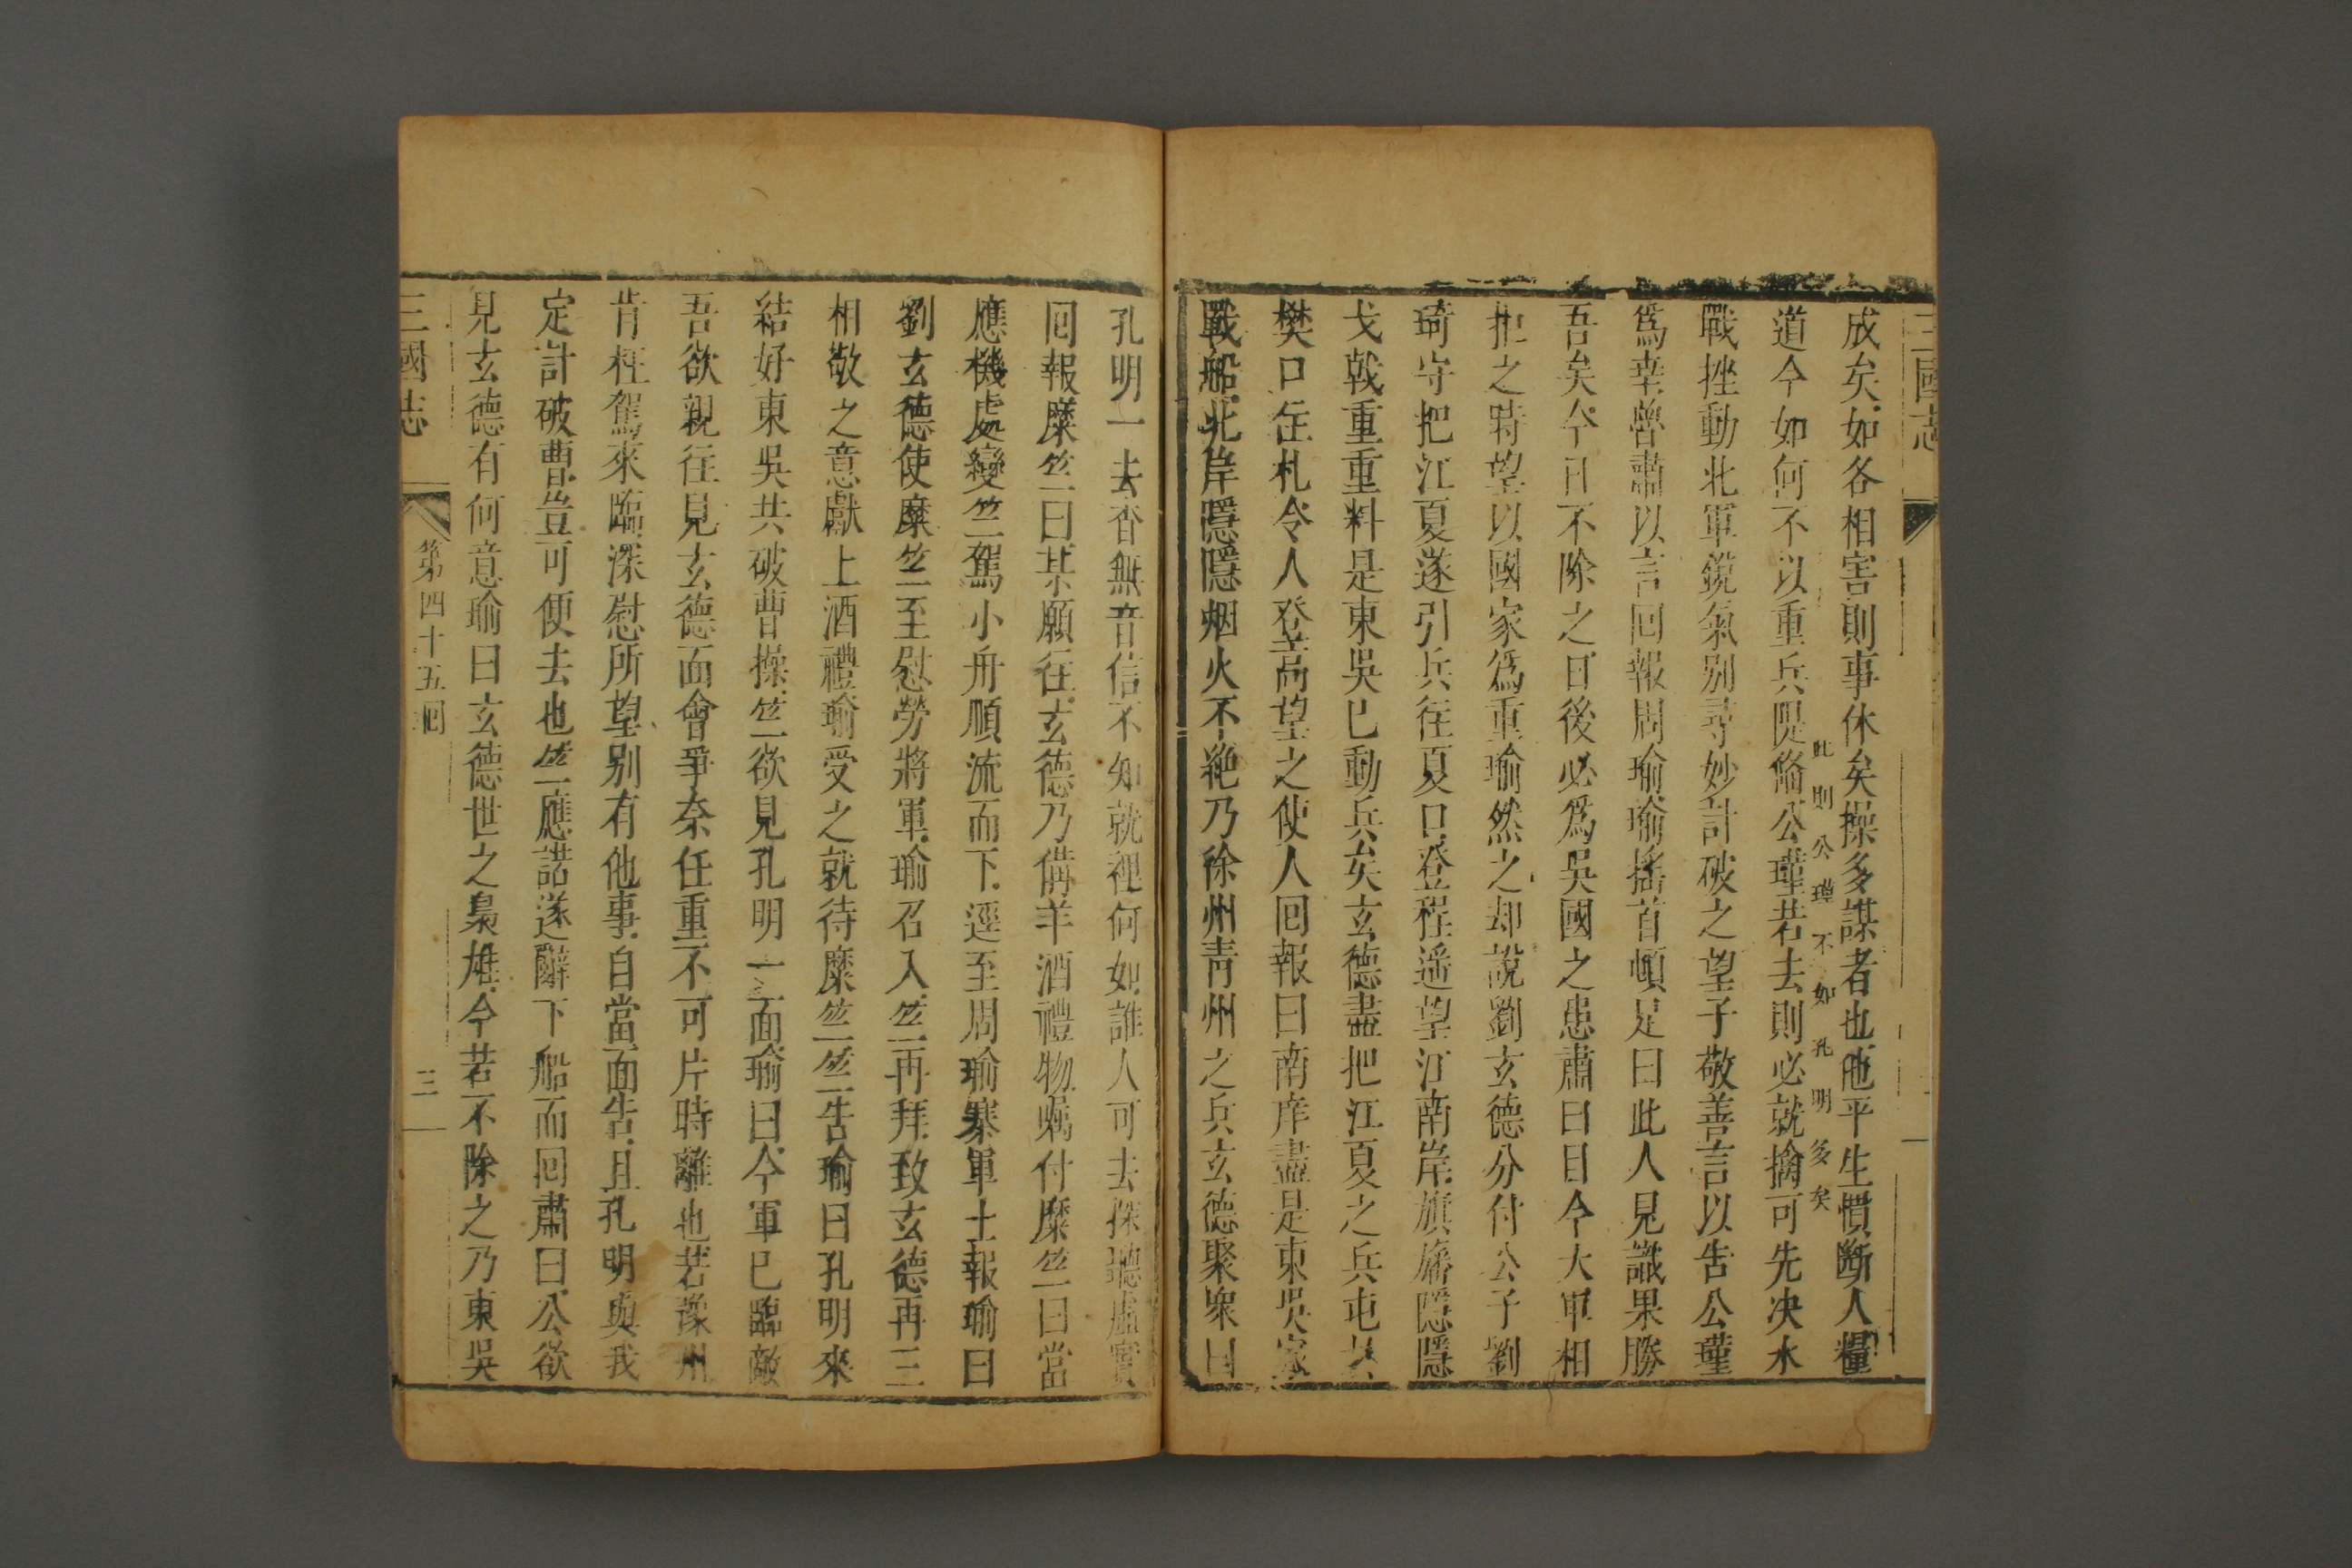 三國志
成矣如各相害則事休矣操多謀者也他平生慣斷人糧
此則公瑾不如孔明多矣
道今如何不以重兵隄備公瑾若去則必就擒可先决水
戰挫動北軍銳氣別尋妙計破之望子敬善言以告公瑾
爲幸魯肅以言回報周瑜瑜搖首頓足曰此人見識果勝
吾矣今日不除之日後必爲吳國之患肅曰目今大軍相
拒之時望以國家爲重瑜然之却說劉玄德分付公子劉
琦守把江夏遂引兵往夏口登程遥望江南岸旗旛隱隱
戈戟重重料是東吳已動兵矣玄德盡把江夏之兵屯扎
樊口住札令人登高望之使人囘報曰南岸盡是東吳家
戰船北岸隱隱烟火不絶乃徐州青州之兵玄德聚衆曰
孔明一去杳無音信不知就裡何如誰人可去探聽虛實
囘報糜竺曰某願往玄德乃備羊酒禮物囑付糜竺曰當
應機處變竺駕小舟順流而下逕至周瑜寨軍士報瑜曰
劉玄德使糜竺至慰勞將軍瑜召入竺再拜致玄德再三
相敬之意獻上酒禮瑜受之就待糜竺竺告瑜曰孔明來
結好東吳共破曹操竺欲見孔明一面瑜曰今軍已臨敵
吾欲親往見玄德面會爭奈任重不可片時離也若豫州
肯枉駕來臨深慰所望别有他事自當面告且孔明與我
定計破曹豈可便去也竺應諾遂辭下船而囘肅曰公欲
見玄德有何意瑜曰玄德世之梟雄今若不除之乃東吳
三國志
第四十五囘
三